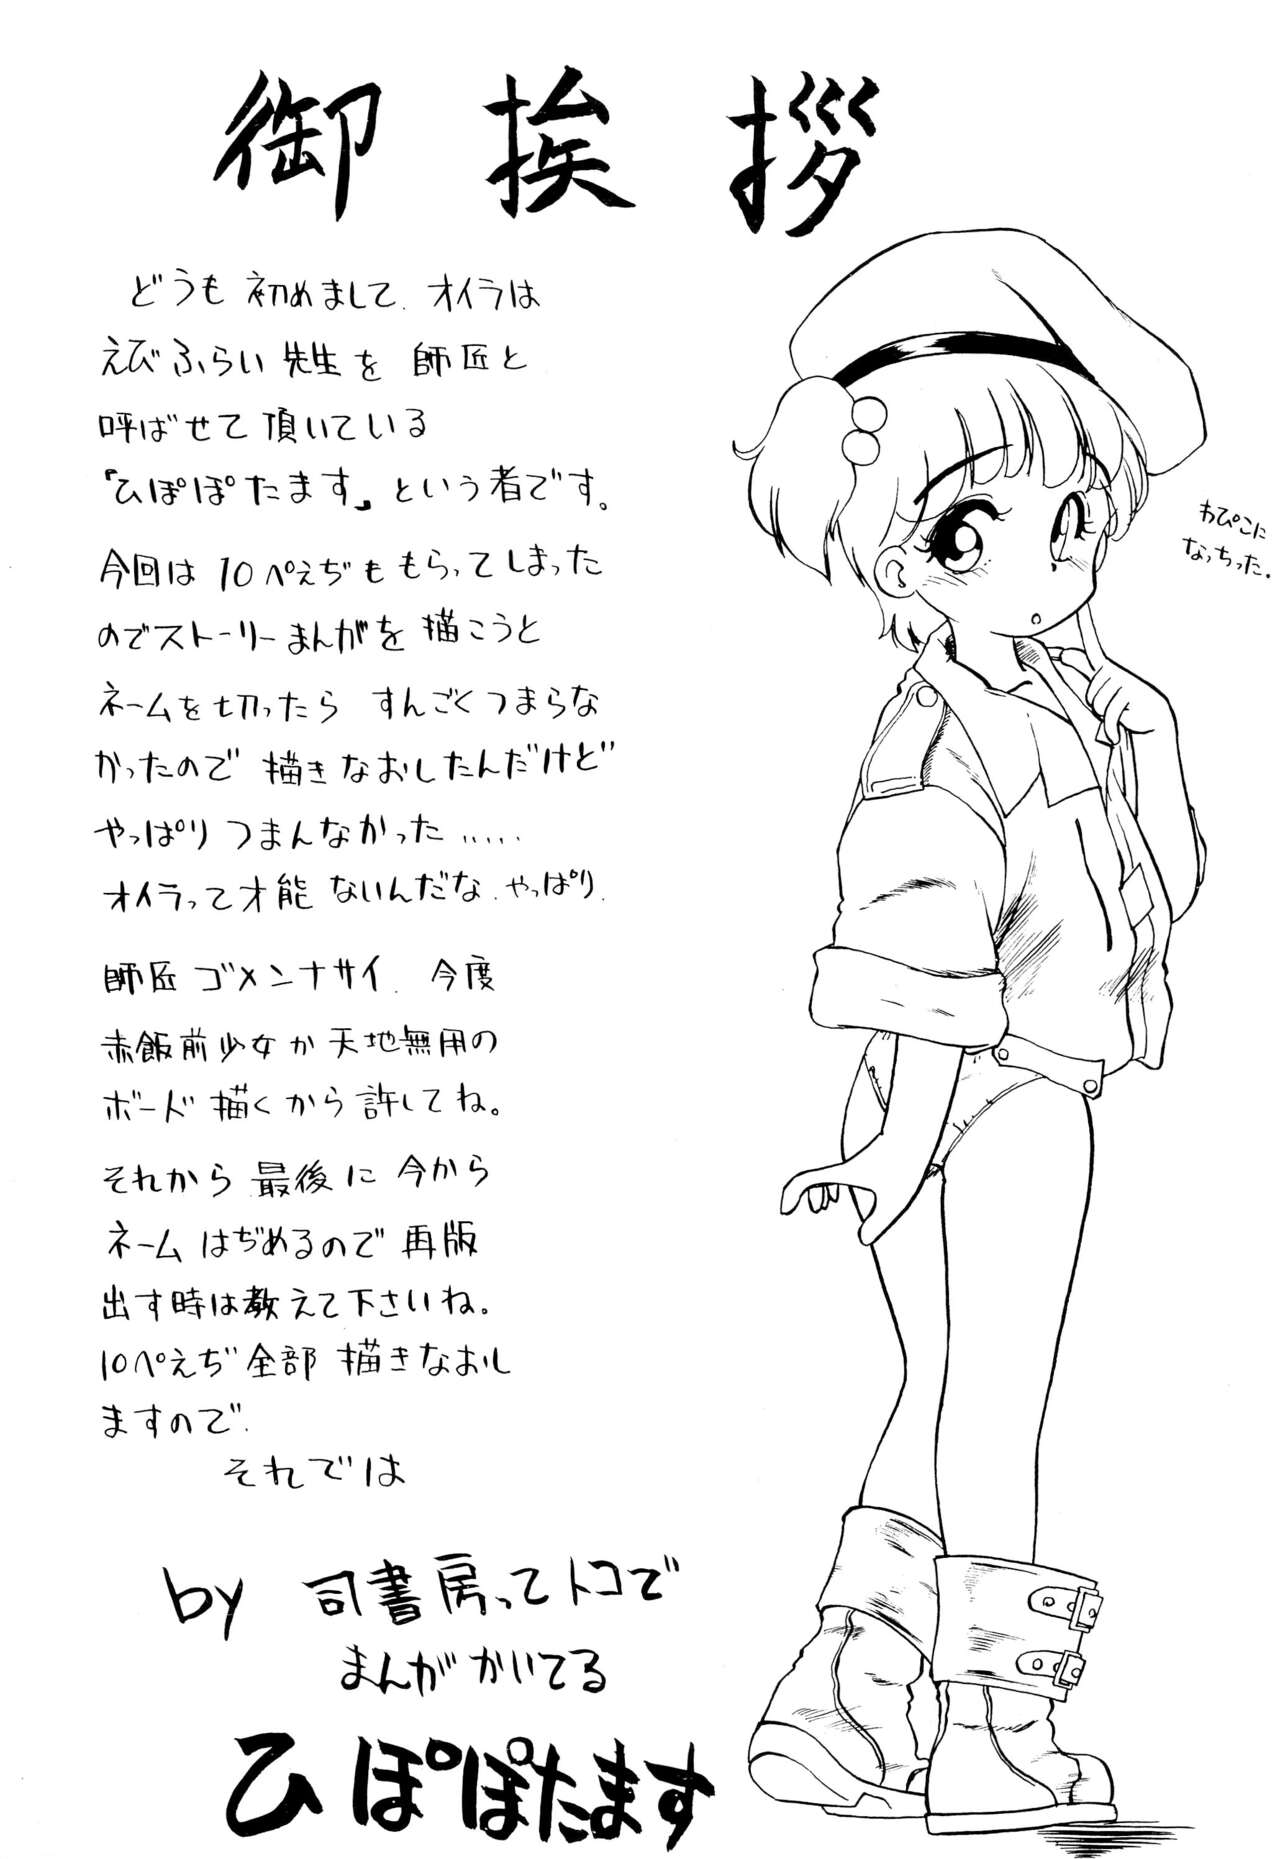 御挨拶
どうも初めまして.オイラは
えびふらい先生を師匠と
呼ばせて頂いている
『ひぽぽたます』という者です。
今回は10ぺえぢももらってしまった
のでストーリーまんがを描こうと
ネームを切ったらすんごくつまらな
かったので描きなおしたんだけど
やっぱりつまんなかった.....
オイラって才能ないんだな.やっぱり.
師匠ゴメンナサイ.今度
赤飯前少女か天地無用の
ボード描くから許してね。
それから最後に今から
ネームはぢめるので再版
出す時は教えて下さいね。
10ぺえぢ全部描きなおし
ますので.
それでは
by 司書房ってトコで
まんがかいてる
ひぽぽたます
わぴこに
なっちった.